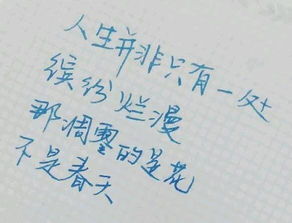 人生并非只有一处
缤纷烂漫
那凋零的是花
不是春天